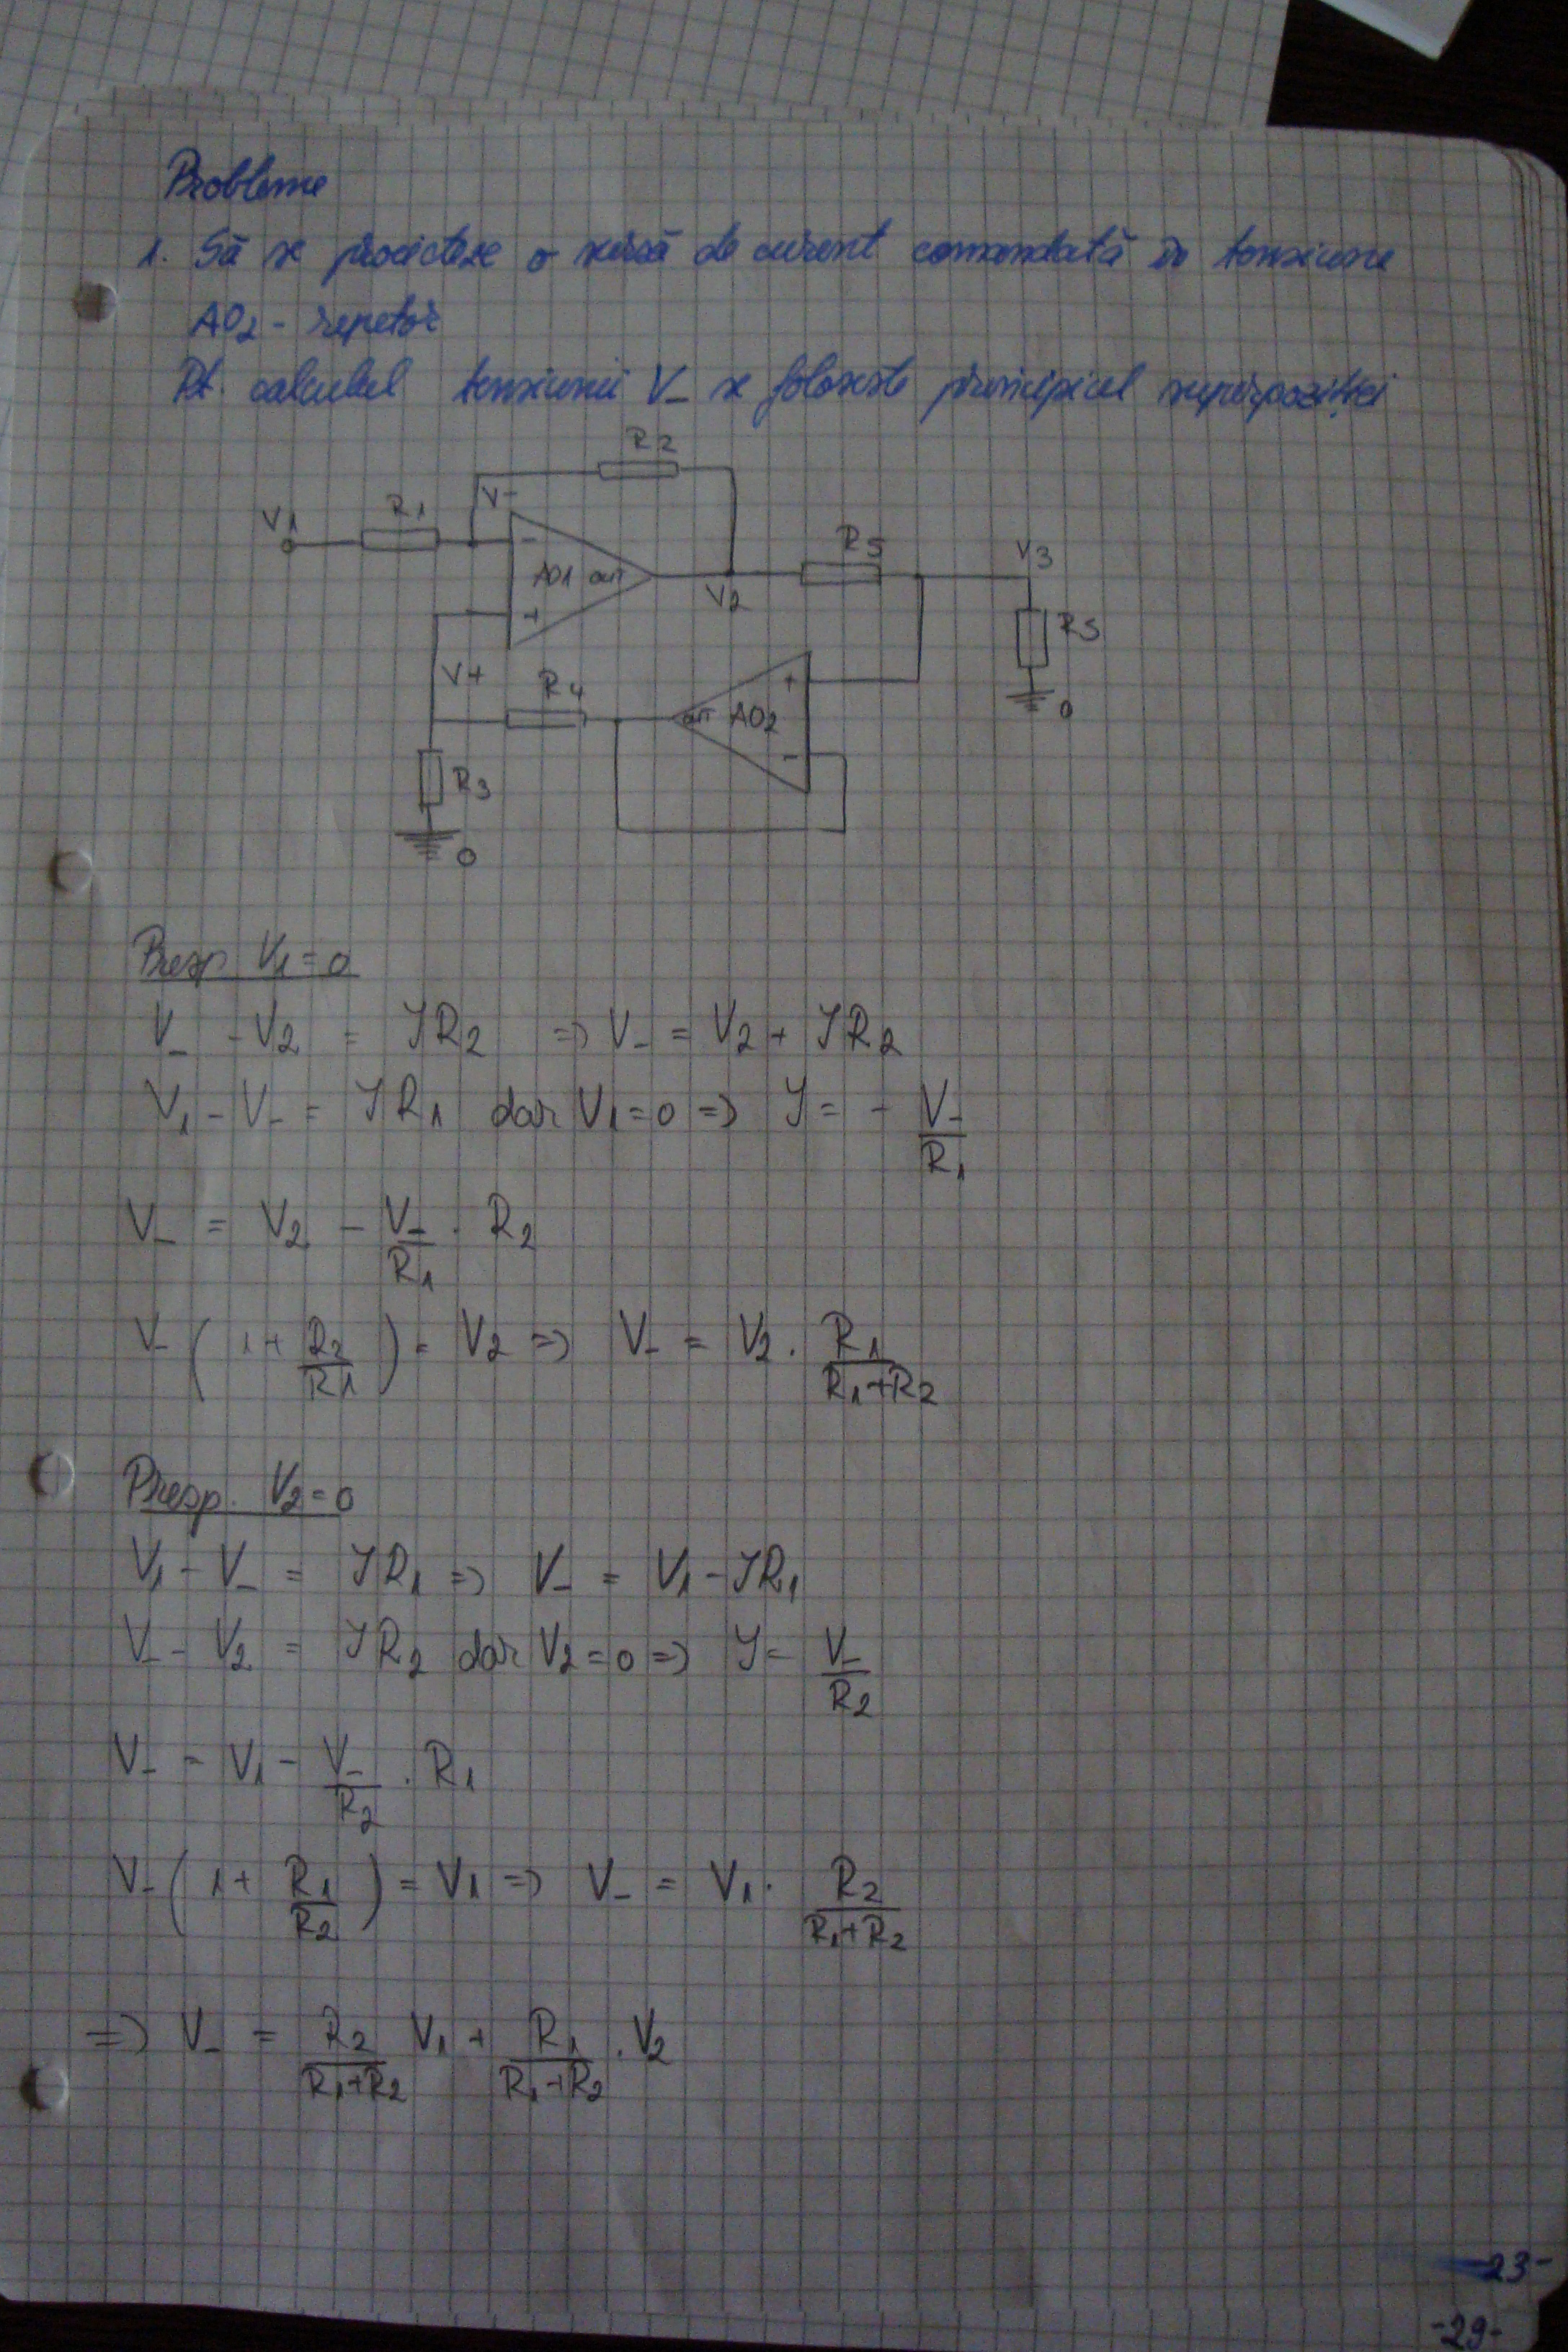 Probleme
1. Să se proiecteze o sursă de curent comandată în tensiune
AO2 - repetor
Pt. calculul tensiunii V_ se foloseste principiul superpoziției
R2
V1 R1 V-
- AO1 out + R5 V3
V2 R5
V+ R4 + out AO2 - 0
R3
0
Presp V1=0
V_ - V2 = IR2 => V_ = V2 + IR2
V1 - V_ = IR1 dar V1=0 => I = - V_/R1
V_ = V2 - V_/R1 · R2
V_ (1+ R2/R1) = V2 => V_ = V2 · R1/R1+R2
Presp. V2=0
V1 - V_ = IR1 => V_ = V1 - IR1
V_ - V2 = IR2 dar V2=0 => I = V_/R2
V_ = V1 - V_/R2 · R1
V_ (1+ R1/R2) = V1 => V_ = V1 · R2/R1+R2
=> V_ = R2/R1+R2 V1 + R1/R1+R2 · V2
23-
-29-